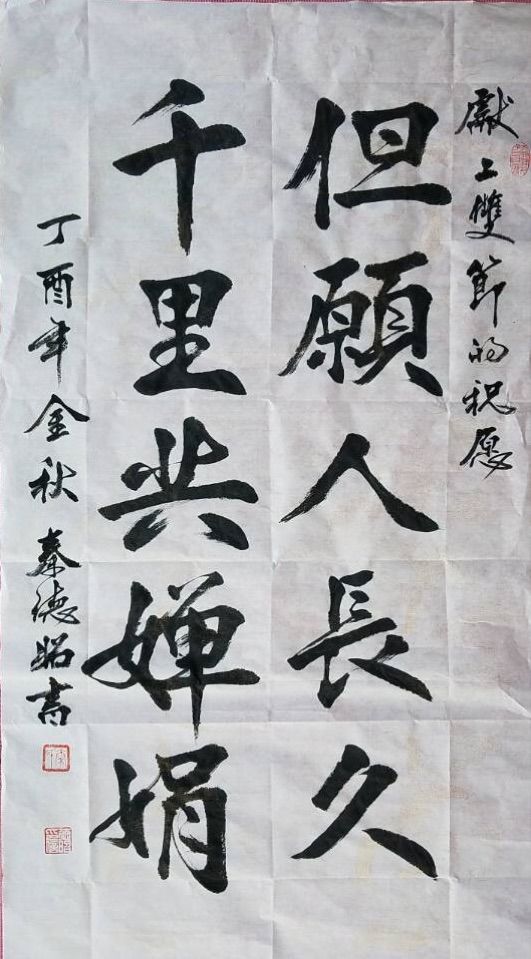 獻上雙節的祝愿
但願人長久
千里共嬋娟
丁酉年金秋 秦德昭書